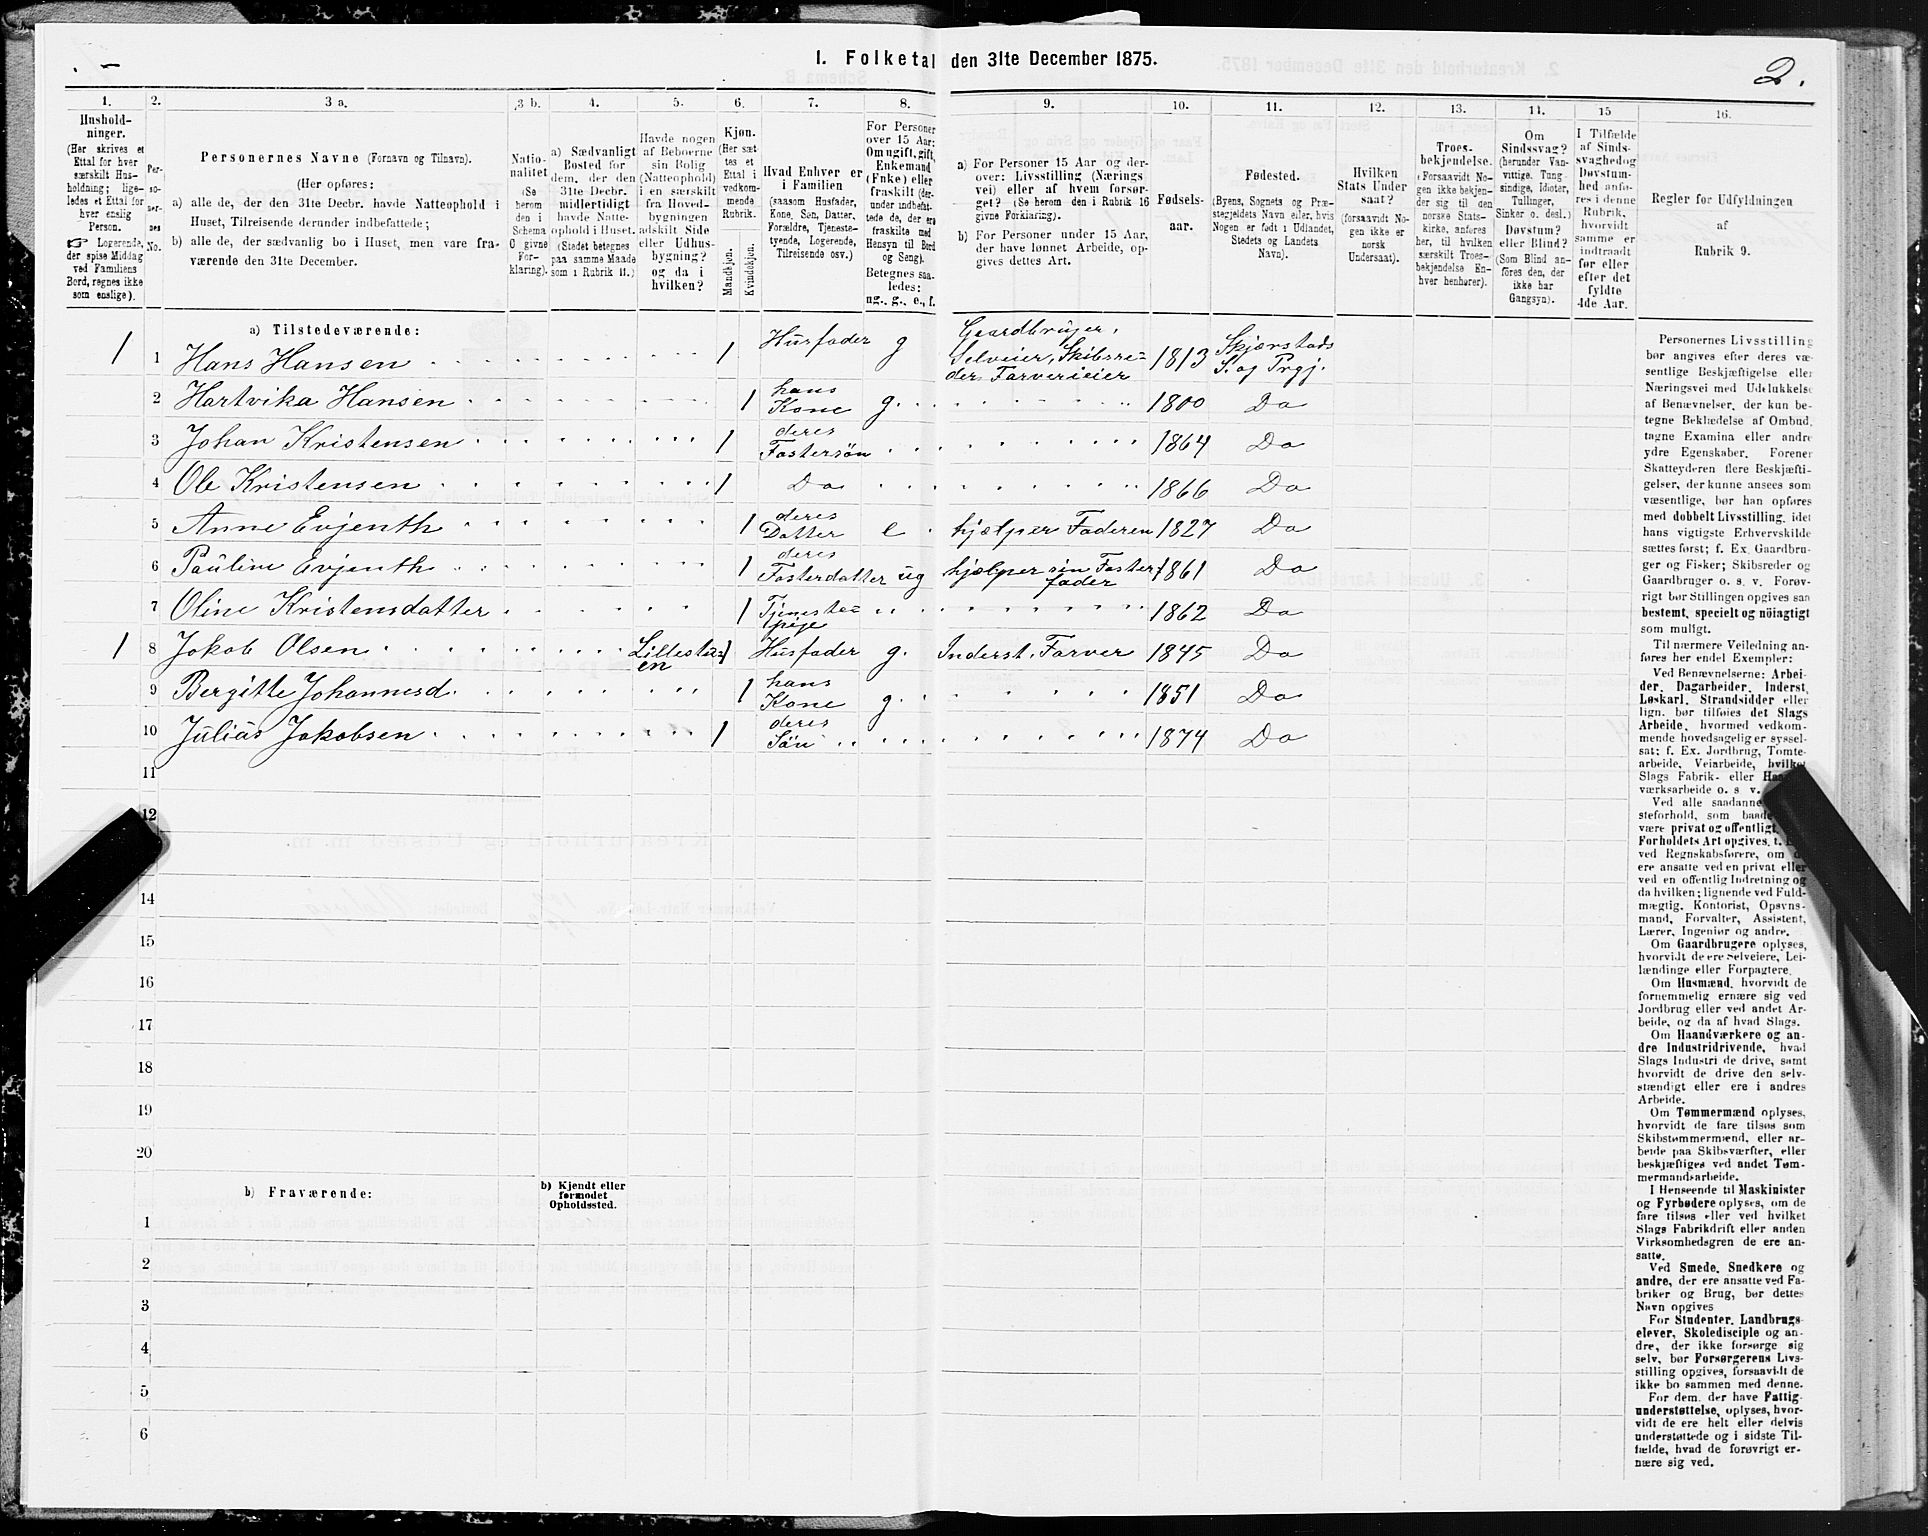 1. Folketal den 31te December 1875.
2.
1.
Hushold-
ninger.
(Her skrives et
Ettal for hver
særskilt Hus-
holdning; lige-
ledes et Ettal for
hver enslig
Person.
☞ Logerende,
der spise Middag
ved Familiens
Bord, regnes ikke
som enslige).
2.
Per-
so-
ner-
nes
No.
3 a.
Personernes Navne (Fornavn og Tilnavn).
(Her opføres:
a) alle de, der den 31te Decbr. havde Natteophold i
Huset, Tilreisende derunder indbefattede;
b) alle de, der sædvanlig bo i Huset, men vare fra-
værende den 31te December.
3 b.
Natio-
nalitet
(Se
herom
den i
Schema
O givne
For-
klaring).
4.
a) Sædvanligt
Bosted for
dem, der den
31te Decbr.
midlertidigt
havde Natte-
ophold i Huset.
(Stedet betegnes
paa samme Maade
som i Rubrik 11.)
5.
Havde nogen
af Beboerne
sin Bolig
(Natteophold)
i en særskilt
fra Hoved-
bygningen
adskilt Side
eller Udhus-
bygning?
og da i
hvilken?
6.
Kjøn.
(Her sæt-
tes et
Ettal i
vedkom-
mende
Rubrik.
Mandkjøn.
Kvindekjøn.
7.
Hvad Enhver er
i Familien
(saasom Husfader,
Kone, Søn, Datter,
Forældre, Tjeneste-
tyende, Logerende,
Tilreisende osv.)
8.
For Personer
over 15 Aar:
Om ugift, gift,
Enkemand
(Enke) eller
fraskilt (der-
under indbefat-
tede de, der ere
fraskilte med
Hensyn til Bord
og Seng).
Betegnes saa-
ledes:
ug., g., e., f.
9.
a) For Personer 15 Aar og der-
over: Livsstilling (Nærings-
vei) eller af hvem forsør-
get? (Se herom den i Rubrik 16
givne Forklaring).
b) For Personer under 15 Aar,
der have lønnet Arbeide, op-
gives dettes Art.
10.
Fødsels-
aar.
11.
Fødested.
(Byens, Sognets og Præ-
stegjeldets Navn eller, hvis
Nogen er født i Udlandet,
Stedets og Landets
Navn).
12.
Hvilken
Stats Under-
saat?
(forsaavidt No-
gen ikke er
norsk
Undersaat).
13.
Troes-
bekjendelse.
(Forsaavidt No-
gen ikke bekjen-
der sig til den
norske Stats-
kirke, anføres
her, til hvilken
særskilt Troes-
bekjendelse En-
hver henhører).
14.
Om
Sindssvag?
(herunder Van-
vittige, Tung-
sindige, Idioter,
Tullinger,
Sinker o. desl.)
Døvstum?
eller Blind?
(Som Blind an-
føres den, der
ikke har
Gangsyn).
15
I Tilfælde
af Sinds-
svaghed og
Døvstum-
hed anfø-
res i denne
Rubrik,
hvorvidt
samme er
indtraadt
før eller
efter det
fyldte
4de Aar.
16.
Regler for Udfyldningen
af
Rubrik 9.
a) Tilstedeværende:
1 1 Hans Hansen 1 Husfader g Gaardbruger, Selveier, Skibsre- der Farverieier 1813 Skjerstads S. og Prgj.
2 Hartvika Hansen 1 hans Kone g. 1800 Do
3 Johan Kristensen 1 deres Fostersøn 1864 Do
4 Ole Kristensen 1 Do 1866 Do
5 Anne Evjenth 1 deres Datter e hjælper Faderen 1827 Do
6 Pauline Evjenth 1 deres Fosterdatter ug hjælper sin Foster- fader 1861 Do
7 Oline Kristensdatter 1 Tjeneste- pige 1862 Do
1 8 Jakob Olsen Lillestu- en 1 Husfader g. Inderst, Farver 1845 Do
9 Bergitte Johannesd. 1 hans Kone g. 1851 Do
10 Julius Jakobsen 1 deres Søn 1874 Do
11
12
14
15
16
17
18
19
20
b) Fraværende:
b) Kjendt eller
formodet
Opholdssted.
1
2
3
4
5
6
Personernes Livsstilling
bør angives efter deres væ-
sentlige Beskjæftigelse eller
Næringsvei med Udelukkelse
af Benævnelser, der kun be-
tegne Beklædelse af Ombud,
tagne Examina eller andre
ydre Egenskaber. Forener
Skatteyderen flere Beskjæfti-
gelser, der kunne ansees som
væsentlige, bør han opføres
med dobbelt Livsstilling, idet
hans vigtigste Erhvervskilde
sættes først; f. Ex. Gaardbru-
ger og Fisker; Skibsreder og
Gaardbruger o. s. v. Forøv-
rigt bør Stillingen opgives saa
bestemt, specielt og nöiagtigt
som muligt.
Til nærmere Veiledning an-
føres her endel Exempler:
Ved Benævnelserne: Arbei-
der, Dagarbeider, Inderst,
Løskarl, Strandsidder eller
lign. bør tilføies det Slags
Arbeide, hvormed vedkom-
mende hovedsagelig er syssel-
sat; f. Ex. Jordbrug, Tomte-
arbeide, Veiarbeide, hvilket
Slags Fabrik- eller
værksarbeide o. s v.
Ved alle saadanne
steforhold, som baade
være privat og offentligt,
Forholdets Art opgives, t.
ved Regnskabsførere, om
ere ansatte ved en privat eller
ved en offentlig Indretning og
da hvilken; lignende ved Fuld-
mægtig, Kontorist, Opsyns-
mand, Forvalter, Assistent,
Lærer, Ingeniør og andre.
Om Gaardbrugere oplyses,
hvorvidt de ere Selveiere, Lei-
lændinge eller Forpagtere.
Om Husmænd, hvorvidt de
fornemmelig ernære sig ved
Jordbrug eller ved andet Ar-
beide, og da af hvad Slags.
Om Haandværkere og an-
dre Industridrivende, hvad
Slags Industri de drive, samt
hvorvidt de drive den selv-
stændigt eller ere i andres
Arbeide.
Om Tømmermænd oplyses,
hvorvidt de fare tilsøs som
Skibstømmermænd, eller ar-
beide paa Skibsværfter, eller
beskjæftiges ved andet Tøm-
mermandsarbeide.
I Henseende til Maskinister
og Fyrbødere oplyses, om de
fare tilsøs eller ved hvilket
Slags Fabrikdrift eller anden
Virksomhedsgren de ere an-
satte.
Ved Smede, Snedkere og
andre, der ere ansatte ved Fa-
briker og Brug, bør dettes
Navn opgives
For Studenter, Landbrugs-
elever, Skoledisciple og an-
dre, der ikke forsørge sig
selv, bør Forsørgerens Livs-
stilling opgives, forsaavidt de
ikke bo sammen med denne.
For dem, der have Fattig-
understøttelse, oplyses, hvor-
vidt de ere helt eller delvis
understøttede og i sidste Til-
fælde, hvad de forøvrigt er-
nære sig ved.